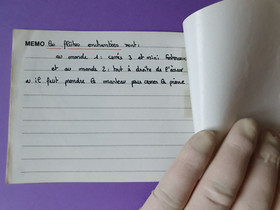 MEMO Les flûtes enchantées sont :
au monde 1 : cartes 3 et mini
et au monde 2 : tout à droite de l'écran
il faut prendre le marteau pour casser la pierre